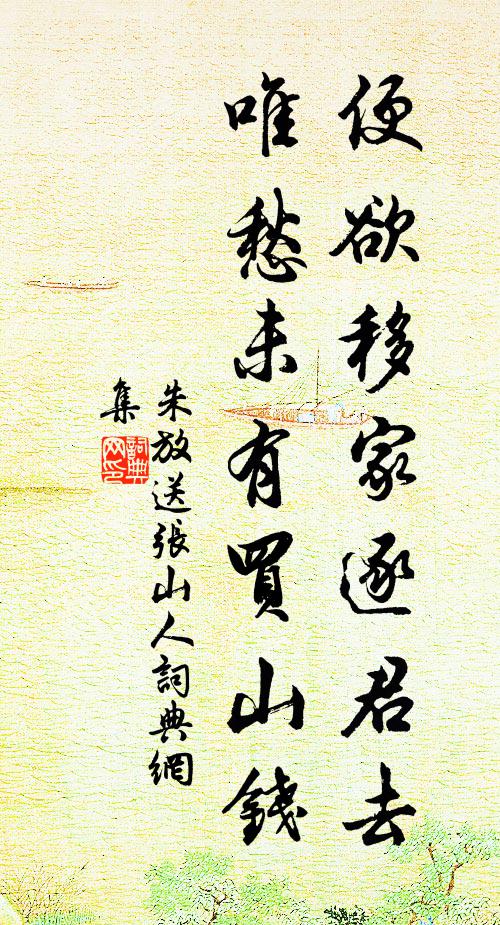 便欲移家逐君去
唯愁未有買山錢
朱放送張山人詞典網
集
詞典
网印